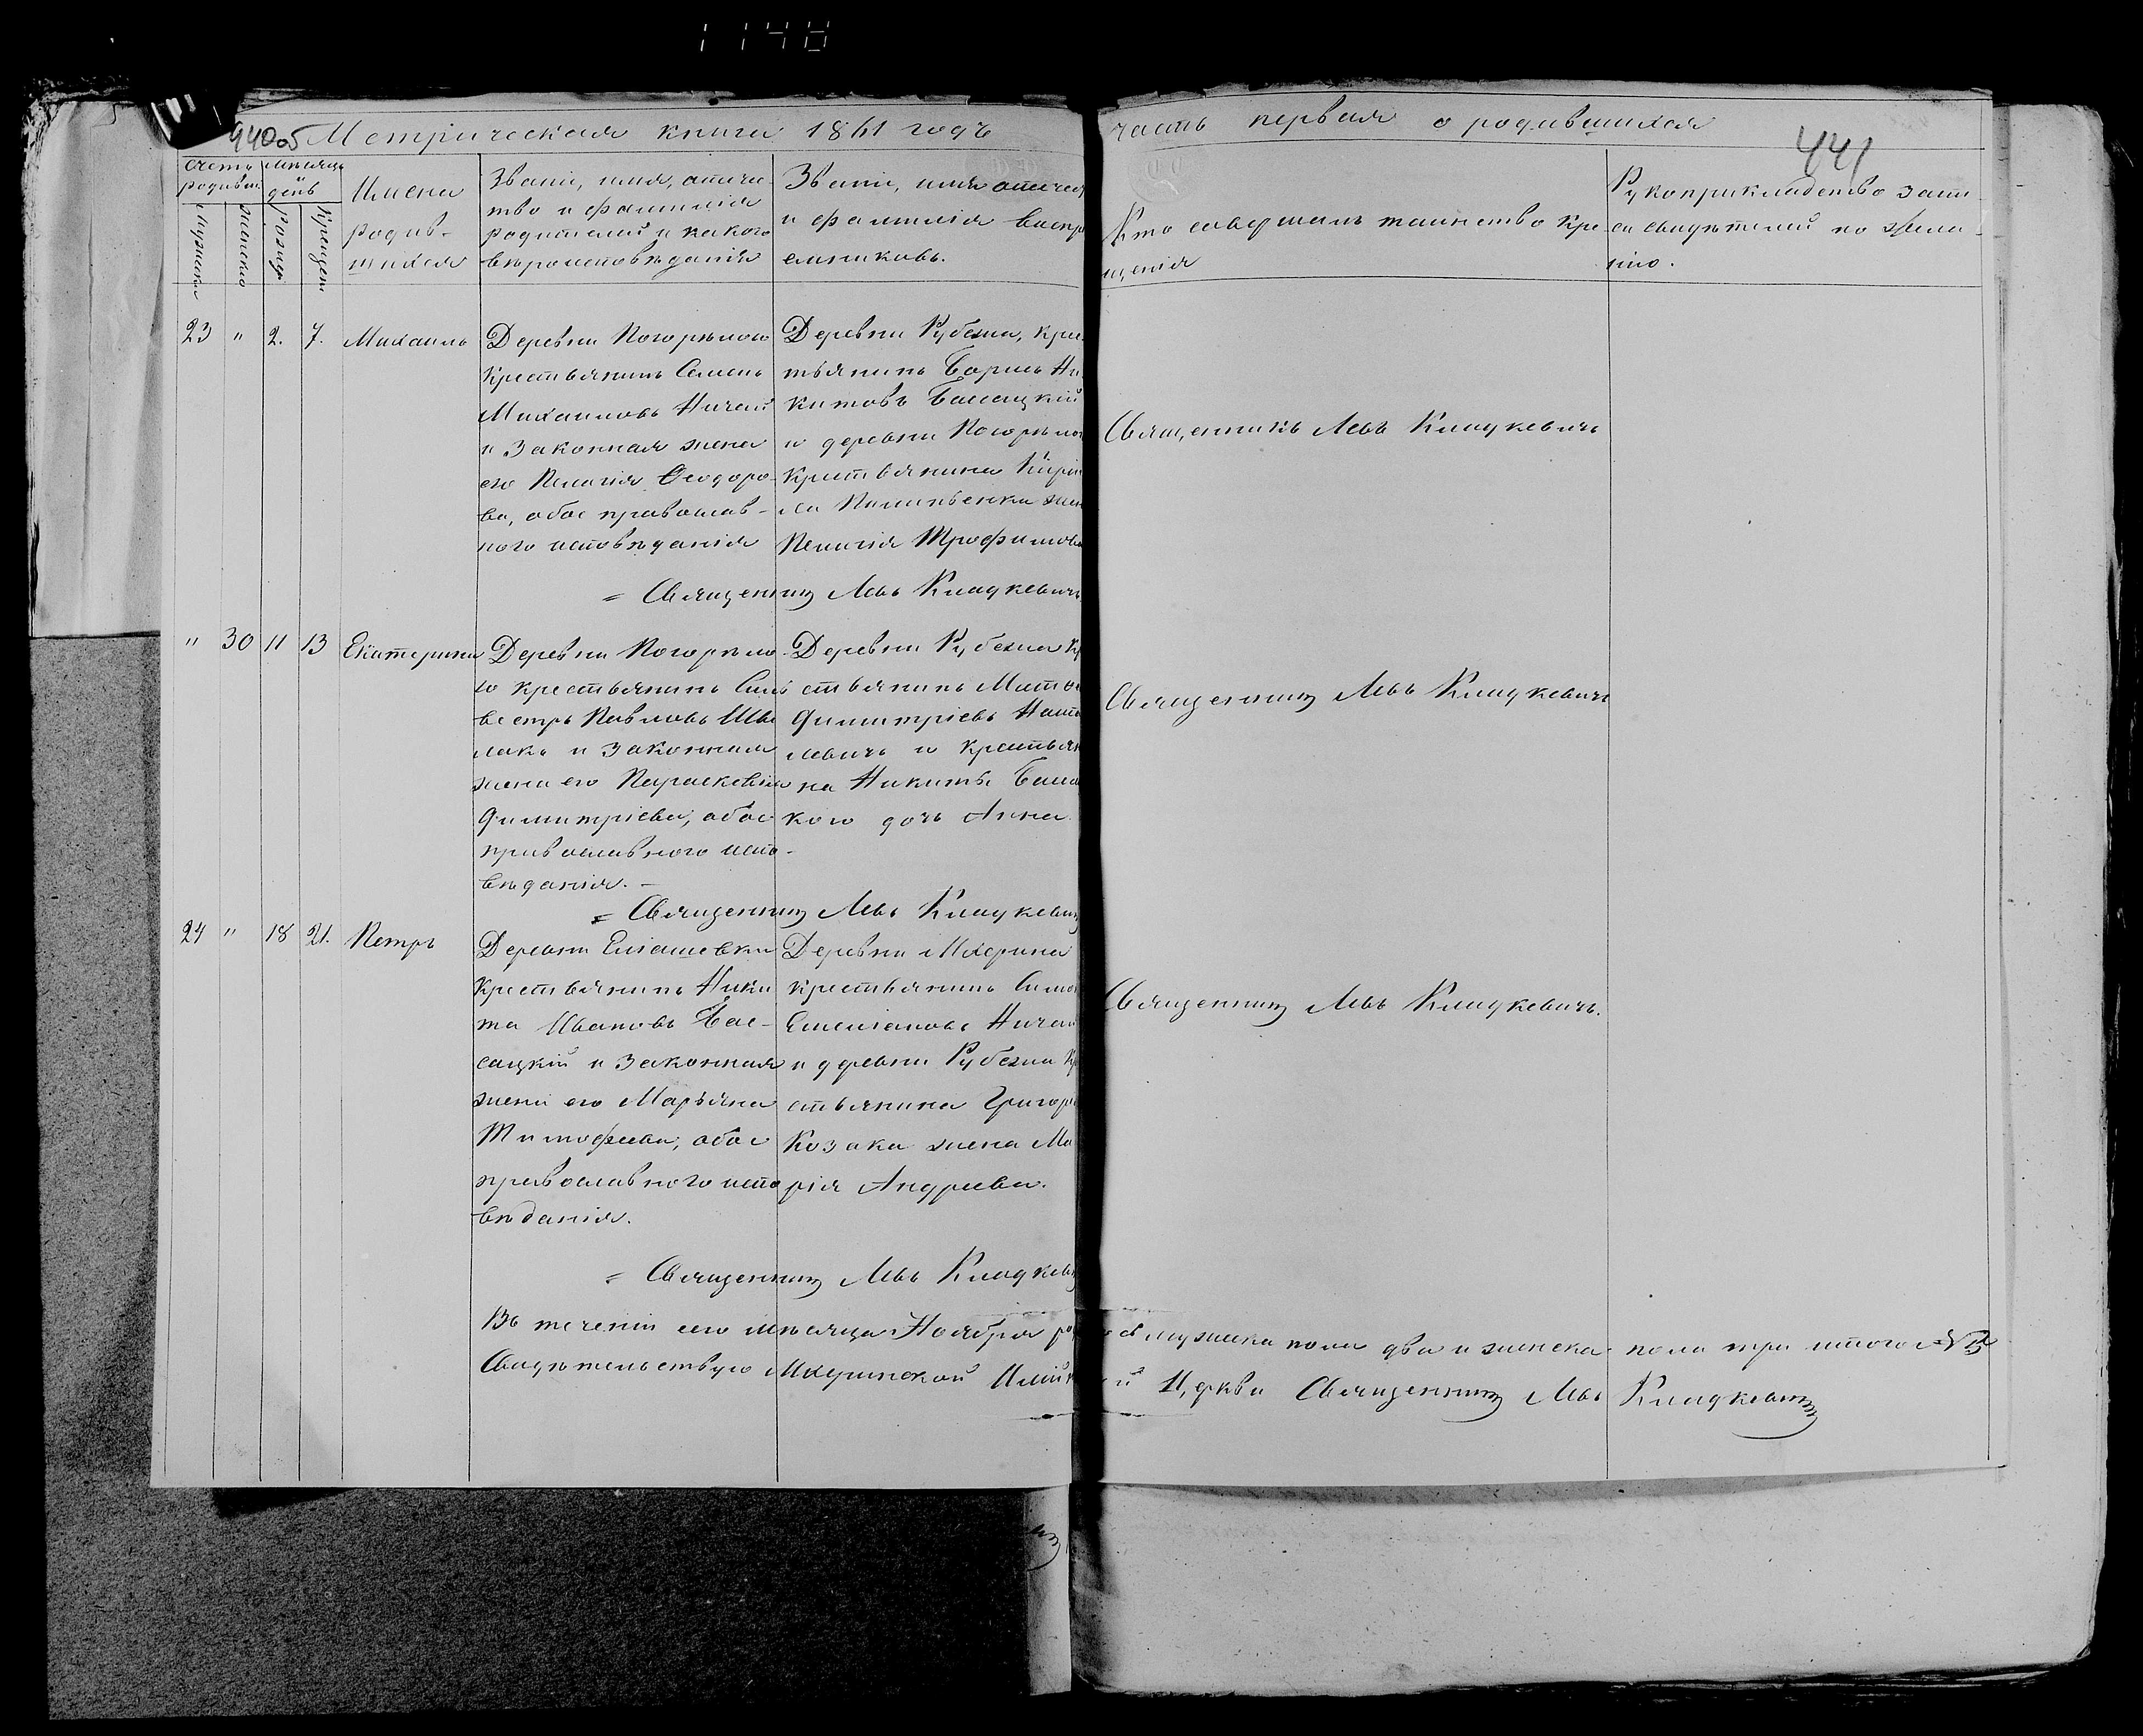 1148
440об Метрическая книга 1861 годъ
часть первая о родившихся
441
Счетъ родивш.
Мѣсяцъ день
Мужеска
Женска
Рожд.
Крещен.
Имена
родив-
шихся
Званіе, имя, отече-
ство и фамилія
родителей и какого
вѣроисповѣданія
Званіе, имя отечест
и фамилія воспрі
емниковъ.
Кто совершалъ таинство кре-
щенія
Рукоприкладство запи-
си свидѣтелей по жела-
нію.
23 " 2. 7. Михаилъ
Деревни Погорѣлого
Крестьянинъ Семенъ
Михаиловъ Ничай
и законная жена
его Пелагія Ѳеодоро-
ва, обое православ-
ного исповѣданія
Деревни Рубежа, Крес
тьянинъ Борисъ Ни
китовъ
и деревни Погорѣло
Крестьянина Кири
ла жен
Пелагія Трофимова
Священникъ Левъ Клаукевичъ
= Священникъ Левъ Клаукевичъ
" 30 11 13 Екатерина
Деревни Погорѣло-
го крестьянинъ Сил
вестръ Павловъ Ше
лакъ и законная
жена его Параскевія
Димитріева, обое
православного испо-
вѣданія. -
Деревни Рубежа Кр
стьянинъ
Димитріевъ
и крестьян
на Никиты
кого дочь Анна.
Священникъ Левъ Клаукевичъ
= Священникъ Левъ Клаукевичъ
24 " 18 21. Петръ
Деревни Еліашевки
Крестьянинъ Ники
та Ивановъ Бас-
сацкій и законная
жена его Марьяна
Тимофеева, обое
православного испо
вѣданія.
Деревни Михерина
крестьянинъ
Емеліановъ Ничай
и деревни Рубежа Кр
стьянина Григорі
Козака жена Ма
рія Андреева.
Священникъ Левъ Клаукевичъ.
= Священникъ Левъ Клаукевичъ
Въ теченіи сего мѣсяца Ноября ро мужеска пола два и женска пола три итого №5
Свидѣтельствую Церкви Священникъ Левъ Клаукевичъ